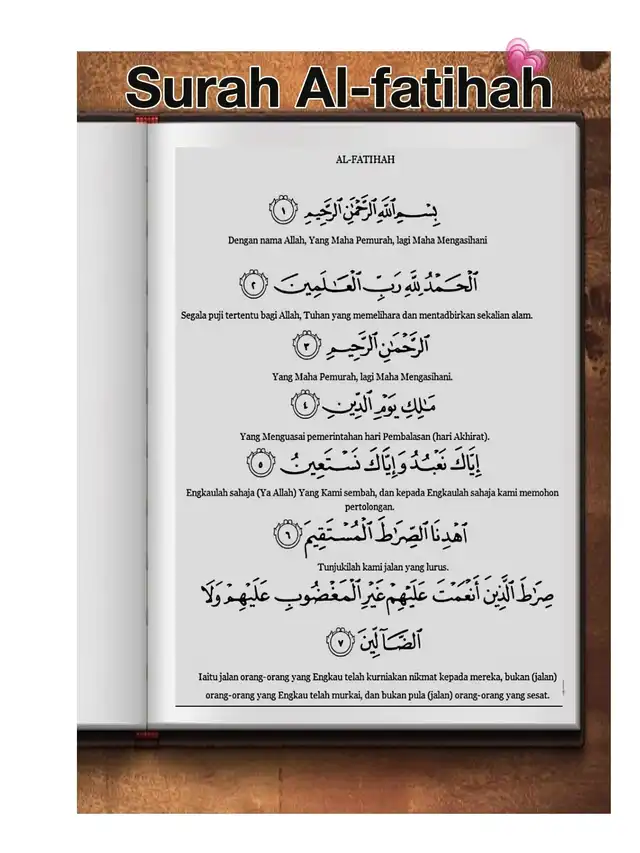 Surah Al-fatihah
AL-FATIHAH
بِسْمِ ٱللَّهِ ٱلرَّحْمَٰنِ ٱلرَّحِيمِ ١
Dengan nama Allah, Yang Maha Pemurah, lagi Maha Mengasihani
ٱلْحَمْدُ لِلَّهِ رَبِّ ٱلْعَٰلَمِينَ ٢
Segala puji tertentu bagi Allah, Tuhan yang memelihara dan mentadbirkan sekalian alam.
ٱلرَّحْمَٰنِ ٱلرَّحِيمِ ٣
Yang Maha Pemurah, lagi Maha Mengasihani.
مَٰلِكِ يَوْمِ ٱلدِّينِ ٤
Yang Menguasai pemerintahan hari Pembalasan (hari Akhirat).
إِيَّاكَ نَعْبُدُ وَإِيَّاكَ نَسْتَعِينُ ٥
Engkaulah sahaja (Ya Allah) Yang Kami sembah, dan kepada Engkaulah sahaja kami memohon
pertolongan.
ٱهْدِنَا ٱلصِّرَٰطَ ٱلْمُسْتَقِيمَ ٦
Tunjukilah kami jalan yang lurus.
صِرَٰطَ ٱلَّذِينَ أَنْعَمْتَ عَلَيْهِمْ غَيْرِ ٱلْمَغْضُوبِ عَلَيْهِمْ وَلَا
ٱلضَّآلِّينَ ٧
Iaitu jalan orang-orang yang Engkau telah kurniakan nikmat kepada mereka, bukan (jalan)
orang-orang yang Engkau telah murkai, dan bukan pula (jalan) orang-orang yang sesat.